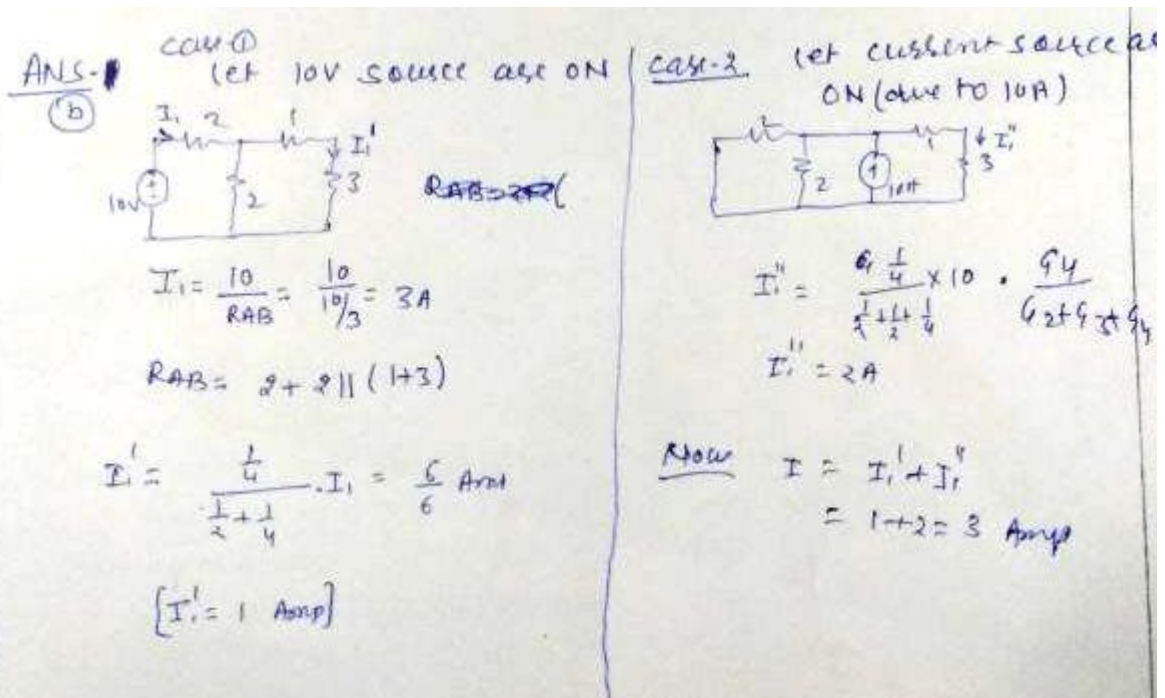 ANS-
(b)
case ①
let 10V source are ON
I₁ 2 1 I₁'
10V 2 3
I₁ = 10/RAB = 10/(10/3) = 3A
RAB = 2 + 2 || (1+3)
I₁' = (1/4)/(1/2 + 1/4) . I₁ = 6/6 Amp
[I₁' = 1 Amp]
case-2 let current source are
ON (due to 10A)
2 1 I₁''
2 10A 3
I₁'' = (1/4)/(1/2 + 1/2 + 1/4) × 10 . G4/(G2+G3+G4)
I₁'' = 2A
Now I = I₁' + I₁''
= 1+2 = 3 Amp